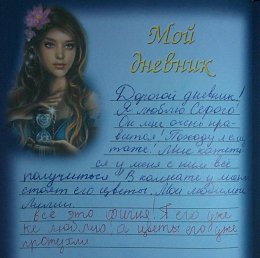 Мой
дневник
Дорогой дневник!
Я люблю Серого!
Он мне очень нра-
вится! Походу я ему
тоже! Мне кажет-
ся у меня с ним всё
получиться! В комнате у меня
стоят его цветы. Мои любимые
Лилии.
Всё это фигня! Я его уже
не люблю, а цветы его уже
протухли